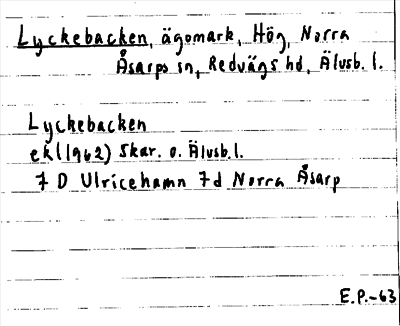 Lyckebacken, ägomark, Hög, Norra
Åsarps sn, Redvägs hd, Älvsb. l.
Lyckebacken
ek (1962) Skar. o. Älvsb. l.
7 D Ulricehamn 7d Norra Åsarp
E.P.-63